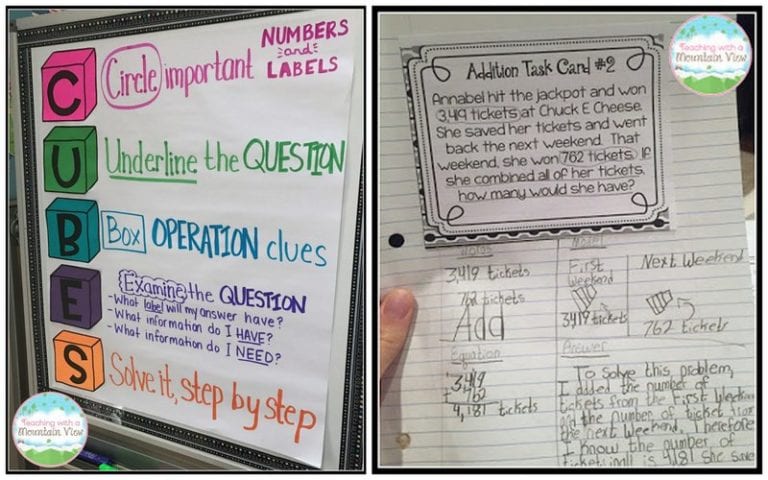 C
Circle important
NUMBERS
and
LABELS
U
Underline the QUESTION
B
Box OPERATION clues
E
Examine the QUESTION
- What label will my answer have?
- What information do I HAVE?
- What information do I NEED?
S
Solve it, step by step
Teaching with a
Mountain View
Teaching with a
Mountain View
Addition Task Card #2
Annabel hit the jackpot and won
3,419 tickets at Chuck E Cheese.
She saved her tickets and went
back the next weekend. That
weekend, she won 762 tickets. If
she combined all of her tickets,
how many would she have?
Notes
3,419 tickets
762 tickets
Add
Model
First
Weekend
3419 tickets
Next Weekend
762 tickets
Equation
3,419
+ 762
4,181 tickets
Answer
To solve this problem,
I added the number of
tickets from the first Weekend
and the number of ticket from
the next Weekend. Therefore
I know the number of
tickets in all is 4,181 she save